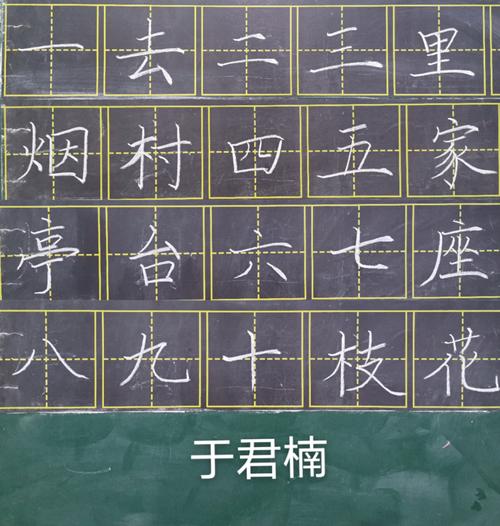 一去二三里
烟村四五家
亭台六七座
八九十枝花
于君楠